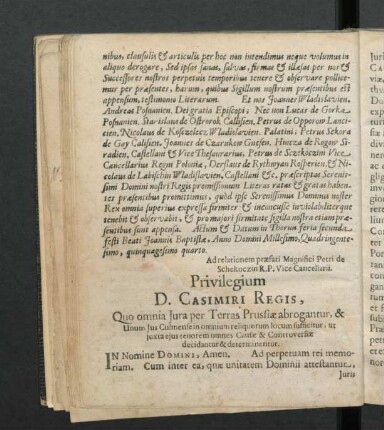 nibus, clausulis & articulis per hoc non intendimus neque volumus in
aliquo derogare, Sed ipsas sanas, salvas, firmas & illæsas per nos &
Successores nostros perpetuis temporibus tenere & observare pollice-
mur per præsentes, harum, quibus Sigillum nostrum præsentibus est
appensum, testimonio Literarum. Et nos Joannes Wladislavien.
Andreas Posnanien. Dei gratia Episcopi; Nec non Lucas de Gorka
Posnanien, Stanislaus de Ostrorok Callisien, Petrus de Opporow Lanci-
cien, Nicolaus de Wladislavien. Palatini; Petrus Schora
de Gay Calisien, Joannes de Czarnkow Gnesen. de Rogow Si-
radien, Castellani & Vice Thesaurarius, Petrus de Vice
Cancellarius Regni Poloniæ, de Rosperien, & Ni-
colaus de Labischin Wladislavien, Castellani &c. præscriptas Serenis-
simi Domini nostri Regis promissionum Literas ratas & gratas haben-
tes præsentibus promittimus, quòd ipse Serenissimus Dominus noster
Rex omnia superius expressa firmiter & inconcussè inviolabiliterque
tenebit & observabit, & pro majori firmitate sigilla nostra etiam præ-
sentibus sunt appensa. Actum & Datum in Thorun feria secunda
festi Beati Joannis Baptistæ. Anno Domini Millesimo, Quadringente-
simo, quinquagesimo quarto.
Ad relationem præfati Magnifici Petri de
Schekoczin R.P. Vice Cancellarii.
Privilegium
D. CASIMIRI REGIS,
Quo omnia Jura per Terras Prussiæ abrogantur, &
Unum Jus Culmense in omnium reliquorum locum sufficitur, ut
juxta ejus tenorem omnes Causæ & Controversiæ
decidantur & determinentur.
IN Nomine DOMINI, Amen. Ad perpetuam rei memo-
riam. Cum inter ea, quæ unitatem Dominii attestantur,
Juris